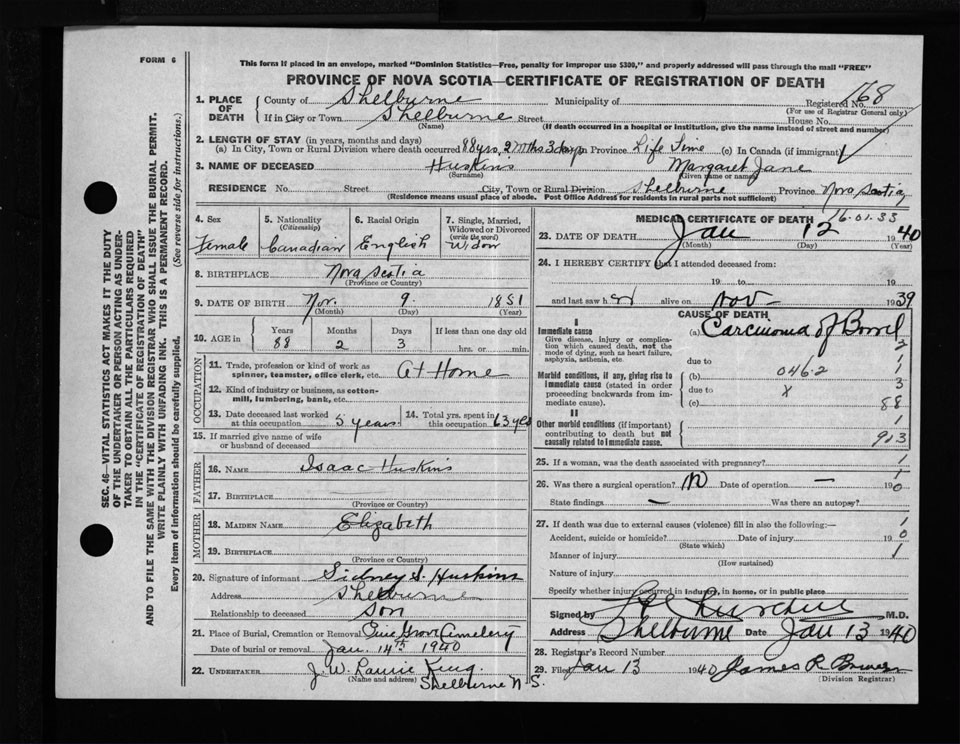 FORM 6
This form if placed in an envelope, marked "Dominion Statistics—Free, penalty for improper use $300," and properly addressed will pass through the mail "FREE"
PROVINCE OF NOVA SCOTIA—CERTIFICATE OF REGISTRATION OF DEATH
SEC. 46—VITAL STATISTICS ACT MAKES IT THE DUTY
OF THE UNDERTAKER OR PERSON ACTING AS UNDER-
TAKER TO OBTAIN ALL THE PARTICULARS REQUIRED
IN THE "CERTIFICATE OF REGISTRATION OF DEATH"
AND TO FILE THE SAME WITH THE DIVISION REGISTRAR WHO SHALL ISSUE THE BURIAL PERMIT.
WRITE PLAINLY WITH UNFADING INK. THIS IS A PERMANENT RECORD.
Every item of information should be carefully supplied. (See reverse side for instructions.)
1. PLACE OF DEATH
County of Shelburne Municipality of Registered No. 768
(For use of Registrar General only)
If in City or Town Shelburne Street House No.
(Name) (If death occurred in a hospital or institution, give the name instead of street and number)
2. LENGTH OF STAY (in years, months and days)
(a) In City, Town or Rural Division where death occurred 88 yrs, 2 mths 3 days Province Life Time (c) In Canada (if immigrant)
3. NAME OF DECEASED Huskins Margaret Jane
(Surname) (Given name or names)
RESIDENCE No. Street City, Town or Rural Division Shelburne Province Nova Scotia
(Residence means usual place of abode. Post Office Address for residents in rural parts not sufficient)
4. Sex 5. Nationality (Citizenship) 6. Racial Origin 7. Single, Married, Widowed or Divorced (write the word)
Female Canadian English Widow
8. BIRTHPLACE Nova Scotia
(Province or Country)
9. DATE OF BIRTH Nov. 9 1851
(Month) (Day) (Year)
10. AGE in Years Months Days If less than one day old
88 2 3 hrs. or min.
OCCUPATION
11. Trade, profession or kind of work as spinner, teamster, office clerk, etc. At Home
12. Kind of industry or business, as cotton-mill, lumbering, bank, etc.
13. Date deceased last worked at this occupation 5 years 14. Total yrs. spent in this occupation 63 yrs
15. If married give name of wife or husband of deceased
FATHER
16. NAME Isaac Huskins
17. BIRTHPLACE
(Province or Country)
MOTHER
18. MAIDEN NAME Elizabeth
19. BIRTHPLACE
(Province or Country)
20. Signature of informant Sidney S. Huskins
Address Shelburne
Relationship to deceased Son
21. Place of Burial, Cremation or Removal Pine Grove Cemetery
Date of burial or removal Jan. 14th 1940
22. UNDERTAKER J. W. King.
(Name and address) Shelburne N S.
MEDICAL CERTIFICATE OF DEATH 16.01.33
23. DATE OF DEATH Jan 12 1940
(Month) (Day) (Year)
24. I HEREBY CERTIFY that I attended deceased from:
19 to 19
and last saw her alive on Nov - 1939
CAUSE OF DEATH
I
Immediate cause
Give disease, injury or complication which caused death, not the mode of dying, such as heart failure, asphyxia, asthenia, etc.
(a) Carcinoma of Bowel
2
due to 1
Morbid conditions, if any, giving rise to immediate cause (stated in order proceeding backwards from immediate cause).
(b) 0462 1
due to X 3
(c) 88
II
Other morbid conditions (if important) contributing to death but not causally related to immediate cause.
1
913
25. If a woman, was the death associated with pregnancy? 1
26. Was there a surgical operation? No Date of operation — 19
1
0
State findings — Was there an autopsy?
27. If death was due to external causes (violence) fill in also the following:— 1
Accident, suicide or homicide? Date of injury 0
(State which)
Manner of injury 1
(How sustained)
Nature of injury
Specify whether injury occurred in industry, in home, or in public place
Signed by M.D.
Address Shelburne Date Jan 13 1940
28. Registrar's Record Number
29. Filed Jan 13 1940 James R. Bower
(Division Registrar)